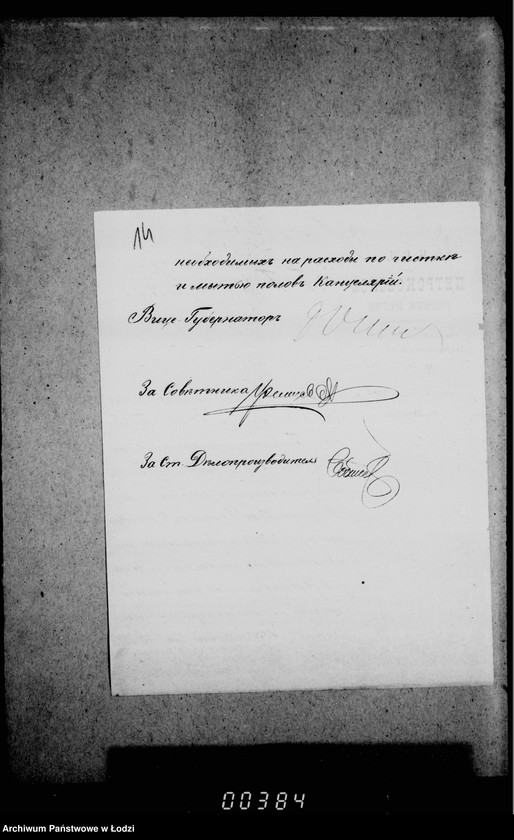 14
необходимыхъ на расходы по чисткѣ
и мытью половъ Канцелярій.
Вице Губернаторъ
За Совѣтника
За Ст. Дѣлопроизводителя
00384
Archiwum Państwowe w Łodzi